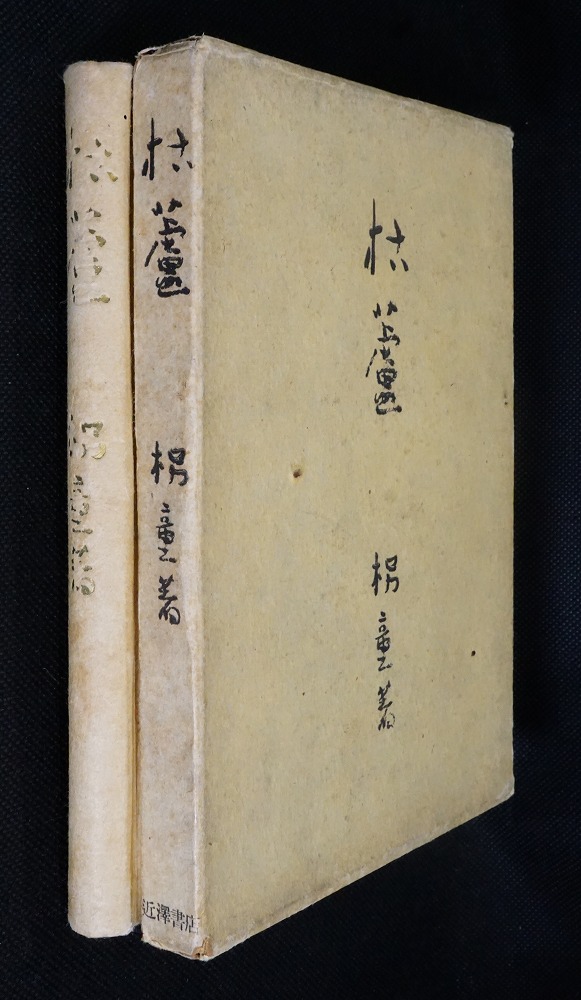 枯蘆
枴童著
枯蘆
枴童著
近澤書店
枯蘆
枴童著